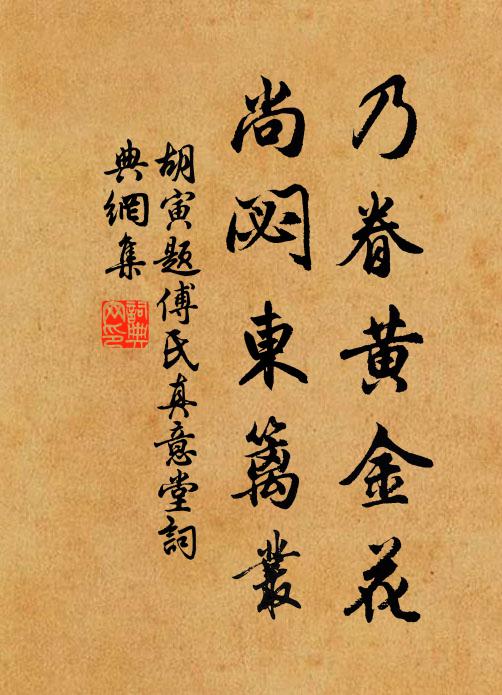 乃眷黄金花
尚閟東籬叢
胡寅題傅氏真意堂詞
典網集
詞典
网印